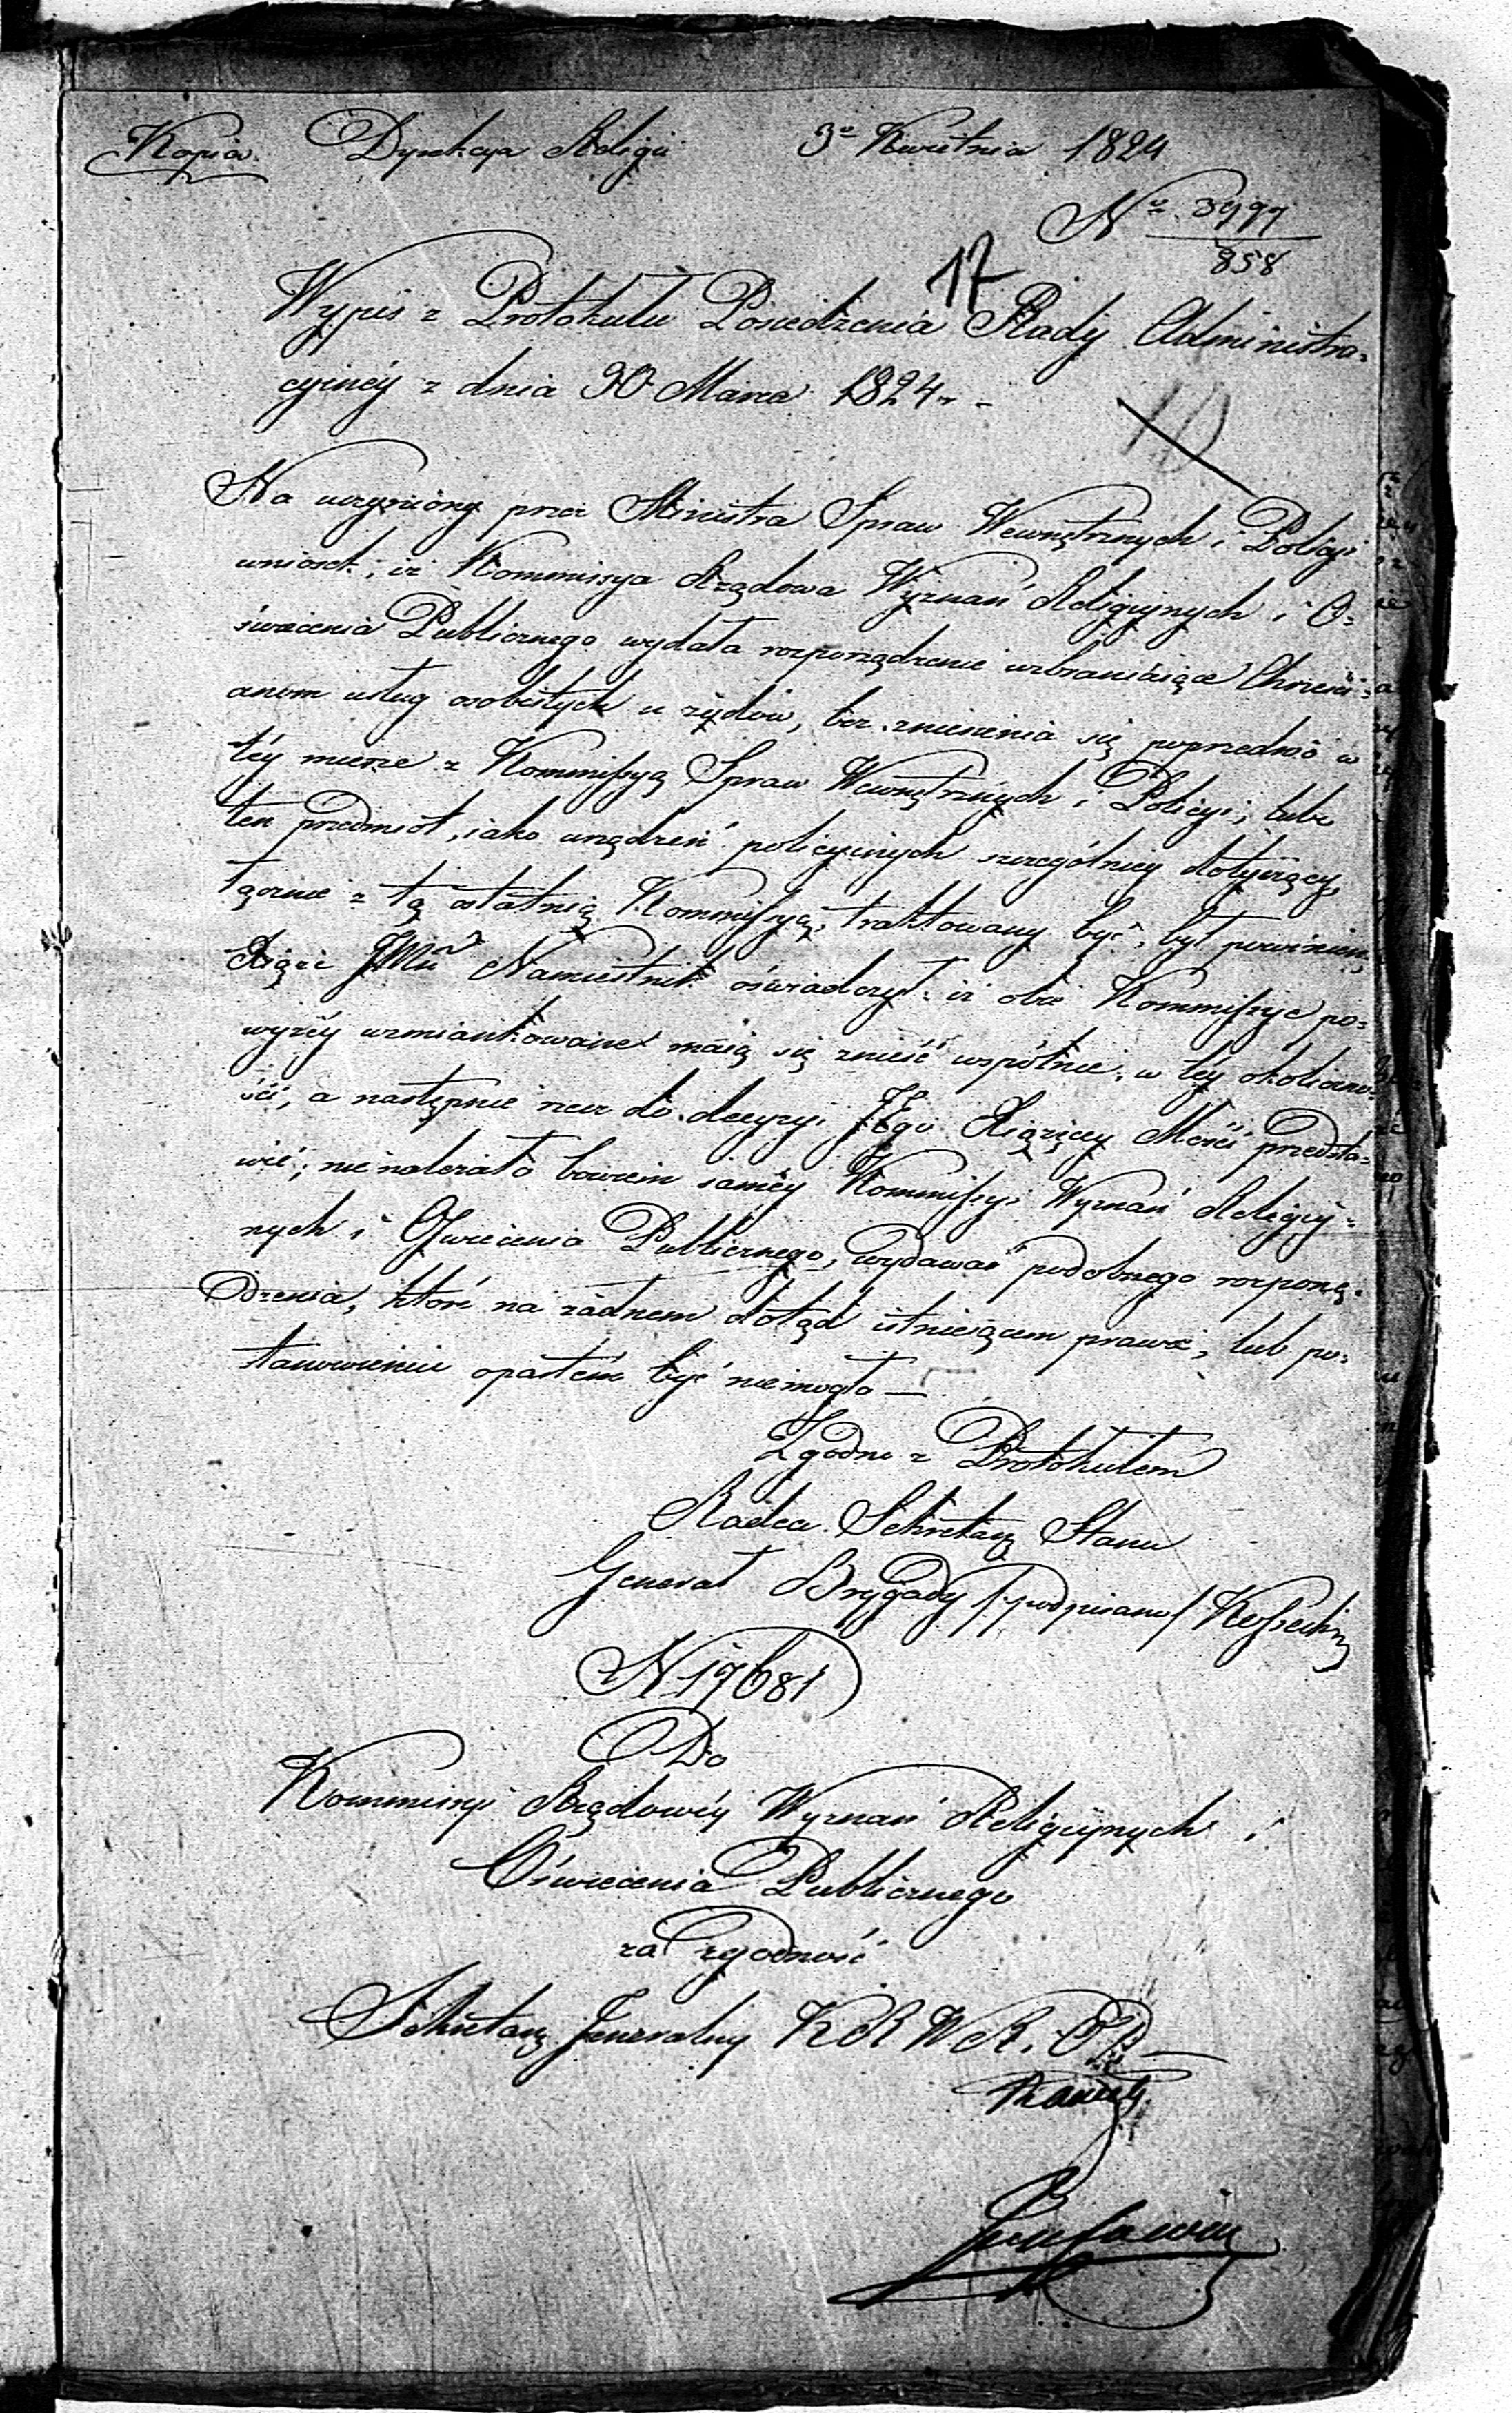 Kopia. Dyrekcya Religii 3º Kwietnia 1824
Nº 3997
858
17
Wypis z Protokułu Posiedzenia Rady Administra=
cyinéy z dnia 30 Marca 1824 r.
10
Na uczyniony przez Ministra Spraw Wewnętrznych i Policyi
wniosek, iż Kommissya Rządowa Wyznań Religijnych i O=
świecenia Publicznego wydała rozporządzenie wzbraniaiące Chrześci=
anom usług osobistych u żydów, bez zniesienia się poprzednio w
téy mierze z Kommissyą Spraw Wewnętrznych i Policyi, lubo
ten przedmiot, iako urządzeń policyinych szczególniey dotyczący,
łącznie z tą ostatnią Kommissyą, traktowany być, był powinien,
Xiąże JMć Namiestnik oświadczył: iż obie Kommissye po=
wyżéy wzmiankowane maią się znieść wspólnie, w téy okoliczno=
ści, a następnie rzecz do decyzyi JEgo Xiążęcey Mości przedsta=
wić; nie należało bowiem saméy Kommissyi Wyznań Religiy=
nych i Oświecenia Publicznego, wydawać podobnego rozporzą=
dzenia, które na żadnem dotąd istnieiącem prawie, lub po=
stanowieniu opartém być niemogło —
Zgodno z Protokułem
Radca Sekretarz Stanu
Generał Brygady /podpisano/ Kossecki
N 17681
Do
Kommissyi Rządowéy Wyznań Religiynych i
Oświecenia Publicznego
za zgodność
Sekretarz Jeneralny K R W R. O P.